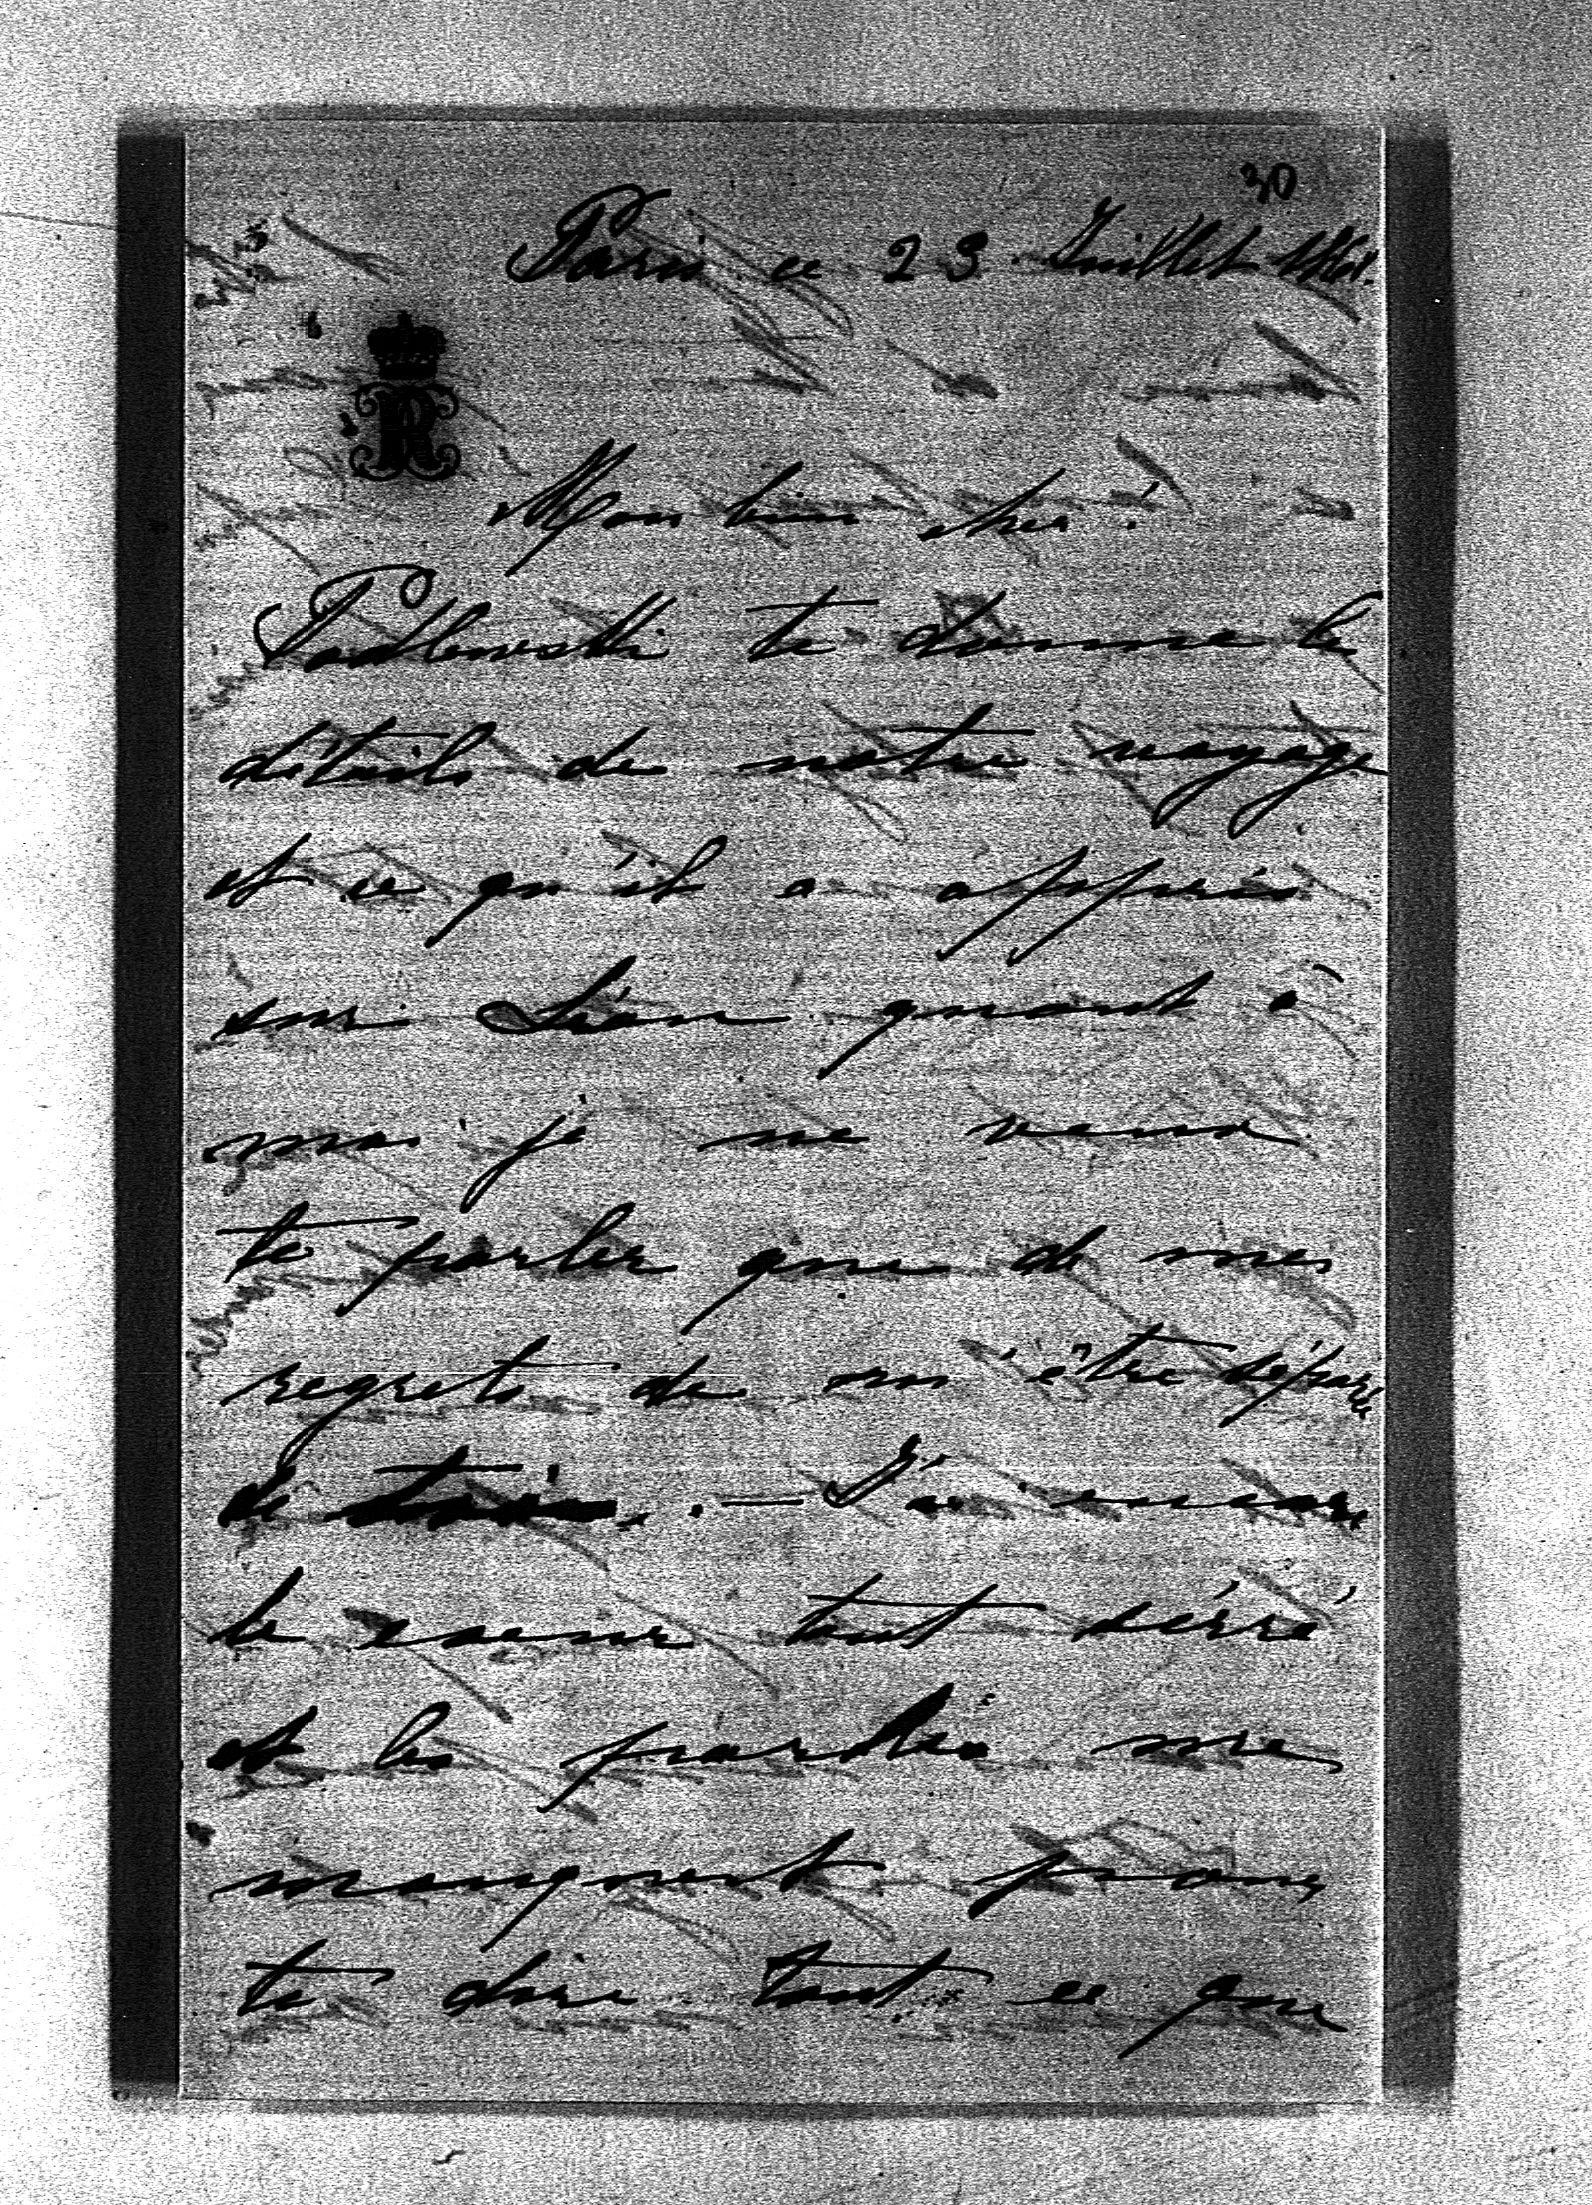 30
Paris ce 23 Juillet
R
Mon bien cher!
Podlewski te donne les
détails de notre voyage
et ce qu'il a appris
sur Léon quant à
moi je ne veux
te parler que de mes
regrets de m'être séparé
de toi. — J'ai encore
le coeur tout serré
et les paroles me
manquent pour
te dire tout ce que